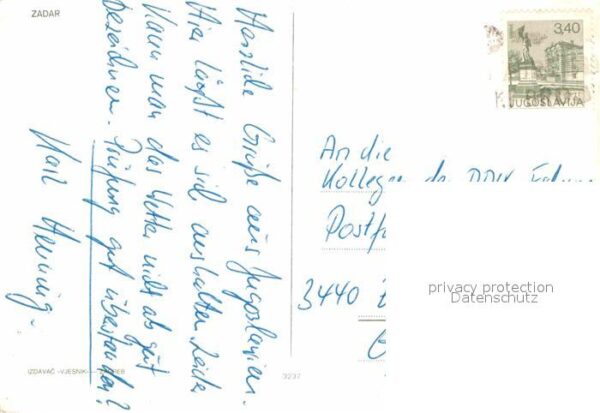 ZADAR
Herzliche Grüße aus Jugoslavien.
Hier läßt es sich aushalten. Leider
kann man das Wetter nicht als gut
bezeichnen. Prüfung gut überstanden?
Karl Henning.
3,40
JUGOSLAVIJA
An die
Kollegen
Postf
3440
privacy protection
Datenschutz
IZDAVAČ »VJESNIK« — ZAGREB
3237